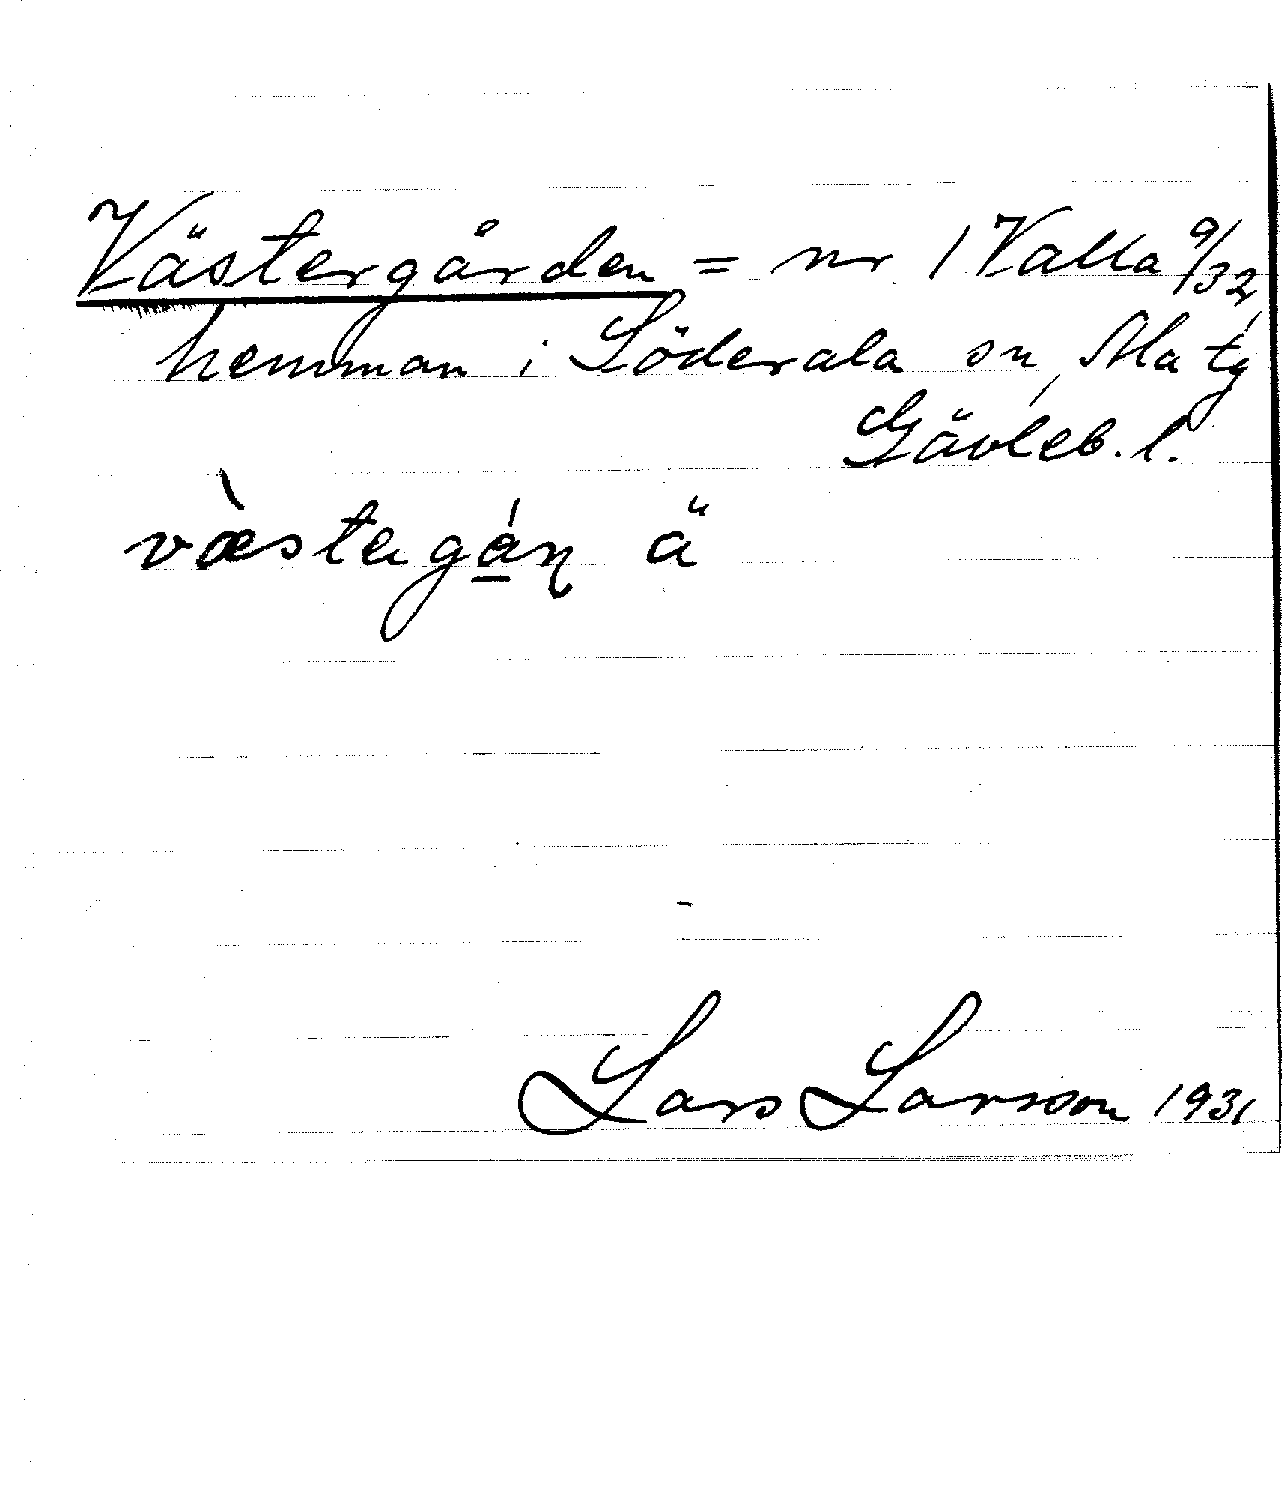 Västergården = nr 1 Valla 9/32
hemman i Söderala sn, Ala tg,
Gävleb. l.
væ̀stagá̲ɳ ä
Lars Larsson 1931